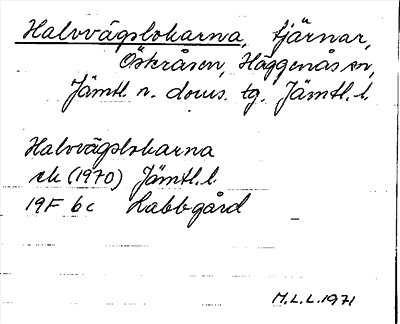 Halvvägslokarna, tjärnar,
Österåsen, Häggenås sn,
Jämtl. n. doms. tg. Jämtl. l.
Halvvägslokarna
ek (1970) Jämtl. l.
19F 6c Labbgård
M.L.L. 1971